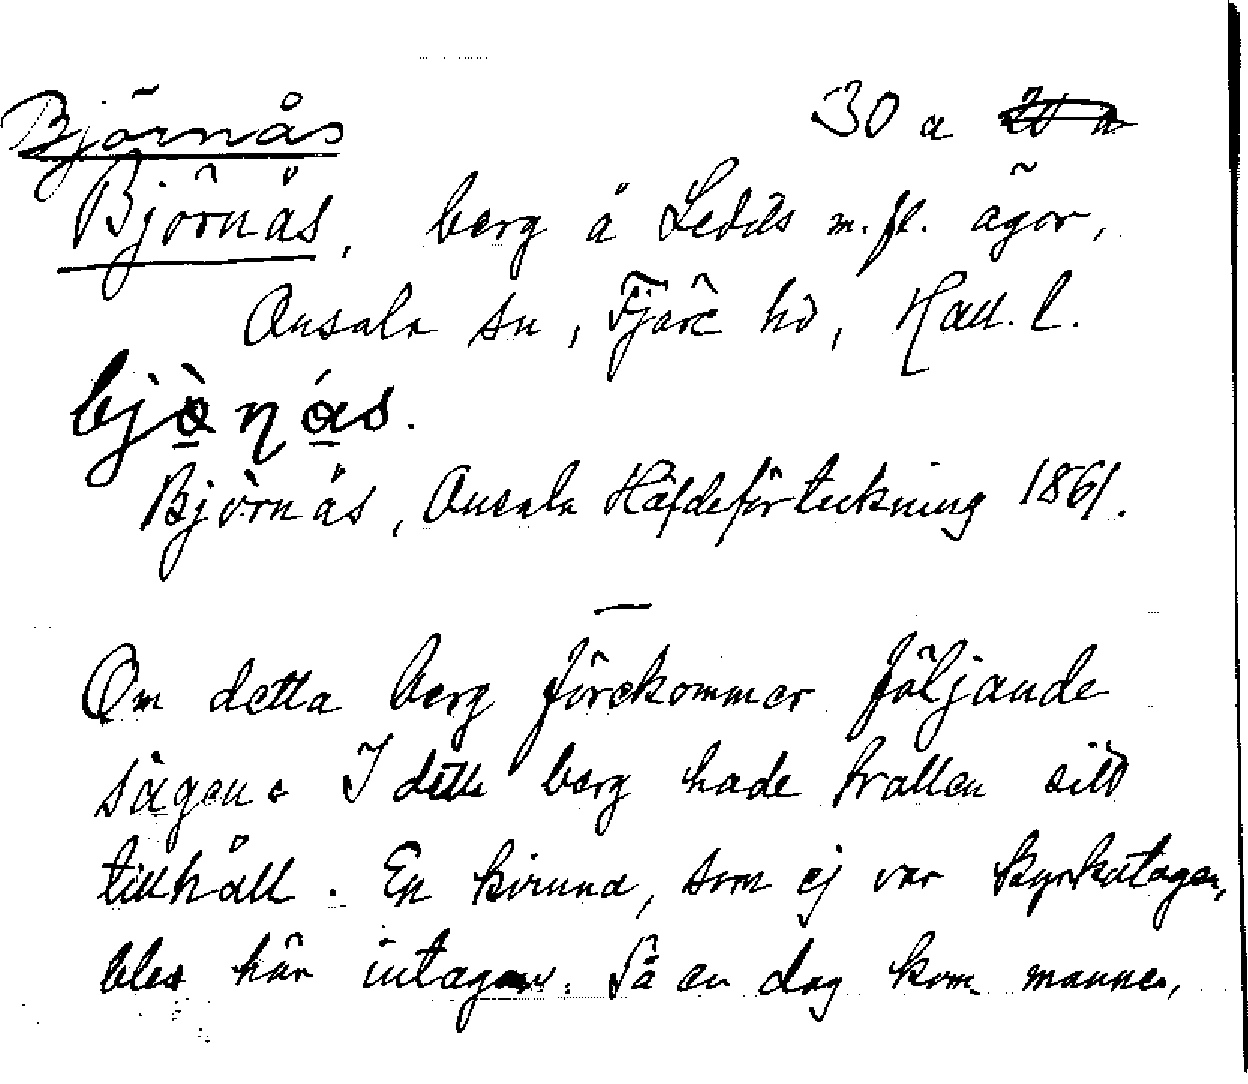 Björnås 30 a
Björnås, berg å Ledås m. fl. ägor,
Onsala sn, Fjäre hd, Hall. l.
Björnås, Onsala Häfdeförteckning 1861.
Om detta berg förekommer följande
sägen. I detta berg hade trollen sitt
tillhåll. En kvinna, som ej var kyrkotagen,
blev här intagen. Så en dag kom mannen,